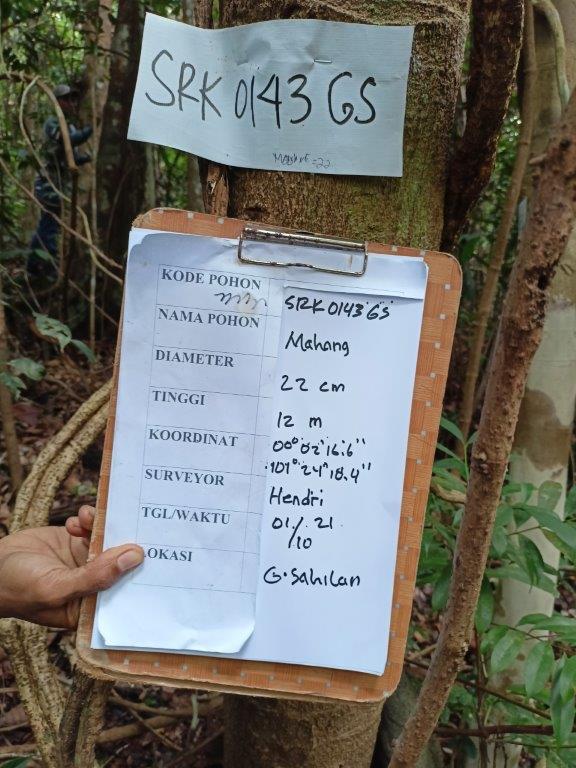 SRK 0143 GS
KODE POHON SRK 0143 GS
NAMA POHON Mahang
DIAMETER 22 cm
TINGGI 12 m
KOORDINAT 00° 02" 16.6"
101° 24" 18.4"
SURVEYOR Hendri
TGL/WAKTU 01/10 21
OKASI G. Sahilan